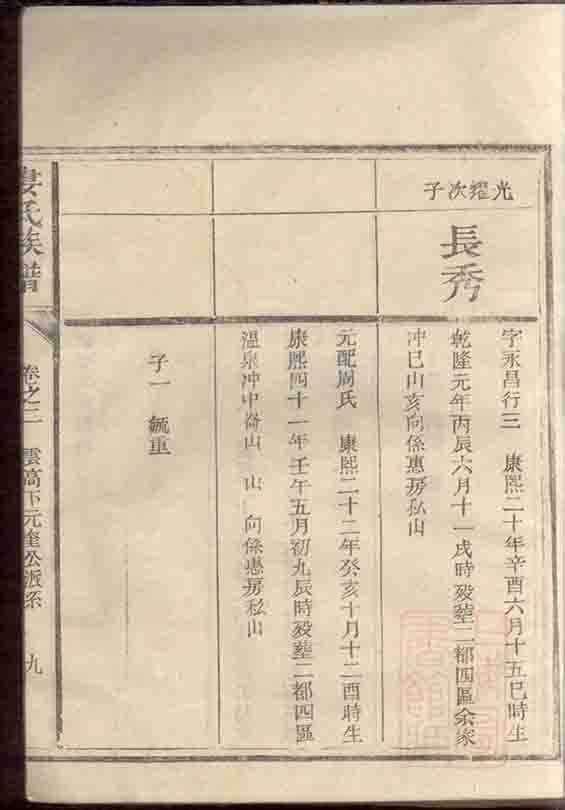 光耀次子
長秀
字永昌行三 康熙二十年辛酉六月十五巳時生
乾隆元年丙辰六月十一戌時殁塟二都四區余家
冲巳山亥向係惠房私山
元配周氏 康熙二十二年癸亥十月十二酉時生
康熙四十一年壬午五月初九辰時殁塟二都四區
溫泉冲中嵛山 山 向係惠房私山
子一 毓重
婁氏族譜
卷之二 雲高下元奎公派系 九